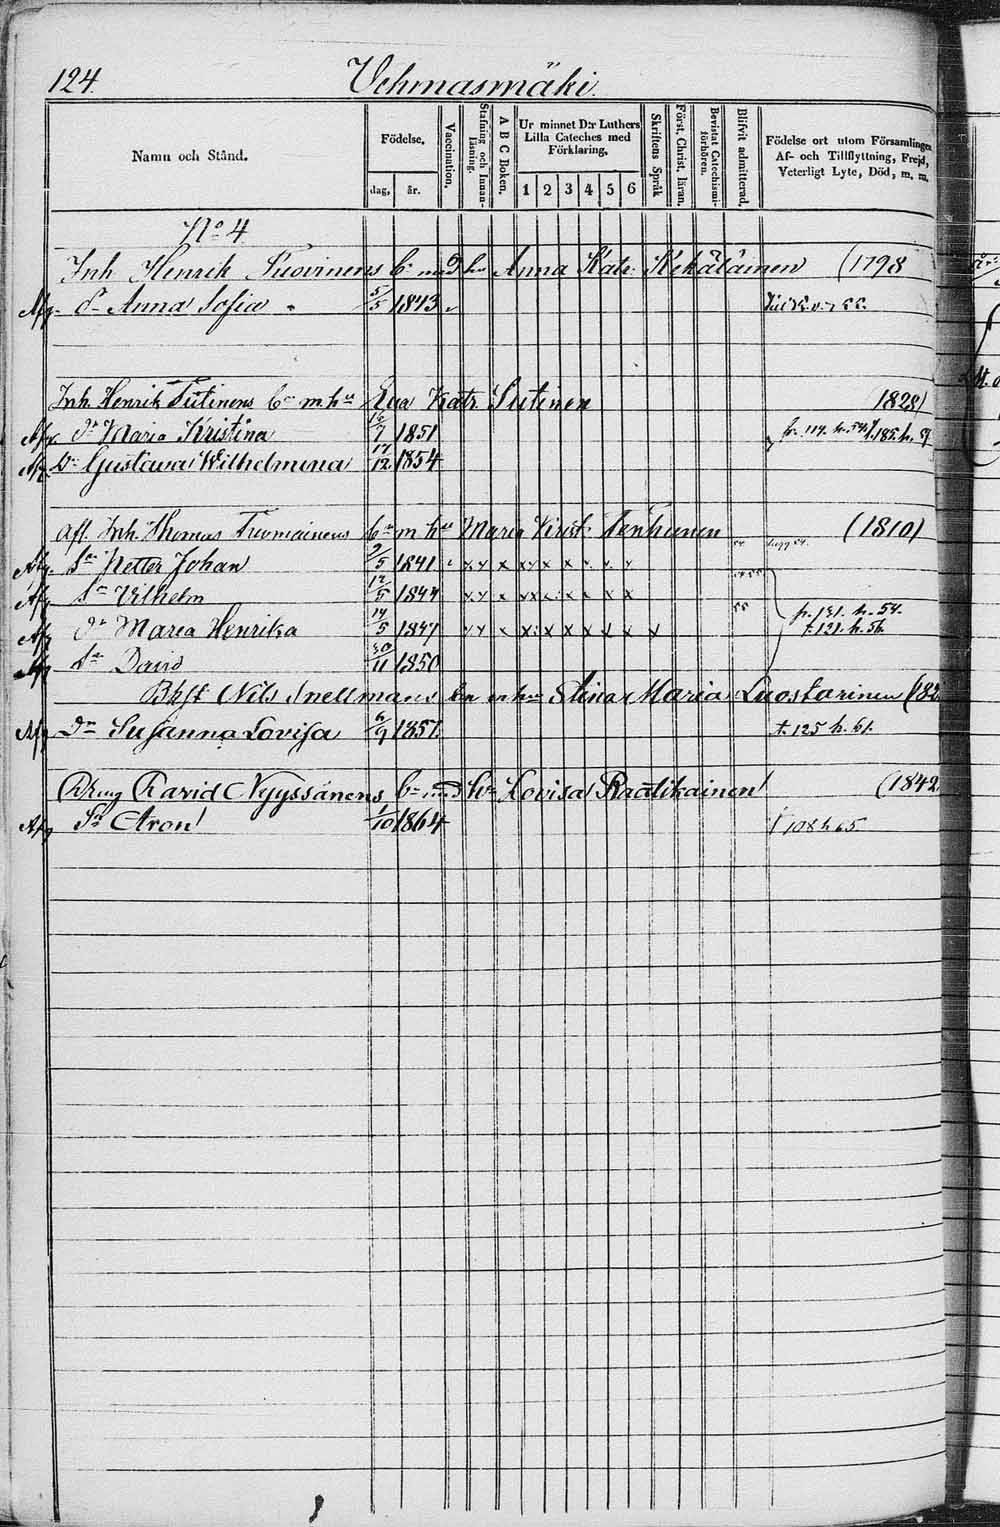 124. Vehmasmäki.
Namn och Stånd.
Födelse.
dag, år.
Vaccination.
Stafning och Innanläsning.
A B C Boken.
Ur minnet D:r Luthers Lilla Cateches med Förklaring.
1 2 3 4 5 6
Skriftens Språk
Först. Christ. läran.
Bevistat Catechismiförhören.
Blifvit admitterad.
Födelse ort utom Församlingen, Af- och Tillflyttning, Frejd, Veterligt Lyte, Död, m. m.
No 4
Inh Henrik Tuovinens b- med h- Anna Katr. Kekäläinen (1798
Afg. dr Anna Sofia 5/5 1843
Inh. Henrik Tiitinens bn m. hu Eva Katr Sutinen 1828)
Afg. dr Maria Kristina 16/7 1851 fr. 114. h. 54. t. 185. h. 59
Afg. Dr Gustava Wilhelmina 17/12 1854
Afl. Inh. Thomas Tuomainens bn m hu Maria Krist. Tenhunen (1810)
Afg. Sn Petter Johan 2/5 1841 x x x x x x x 54
Afg Sn Vilhelm 12/5 1844 x x x x x x x x
Afg dr Maria Henrika 14/5 1847 x x x x x x x x x 55 fr. 131. h. 54. t. 121. h. 56.
Afg Sn David 30/11 1850
Bkst Nils Snellmans bn m hu Stina Maria Luostarinen (182
Afg Dr Susanna Lovisa 6/9 1857. t. 125 h. 61.
David Nyyssönens b- med hu Lovisa Räätikainen (1842
Afg Sn Aron 1/10 1864 t 108 h 65.